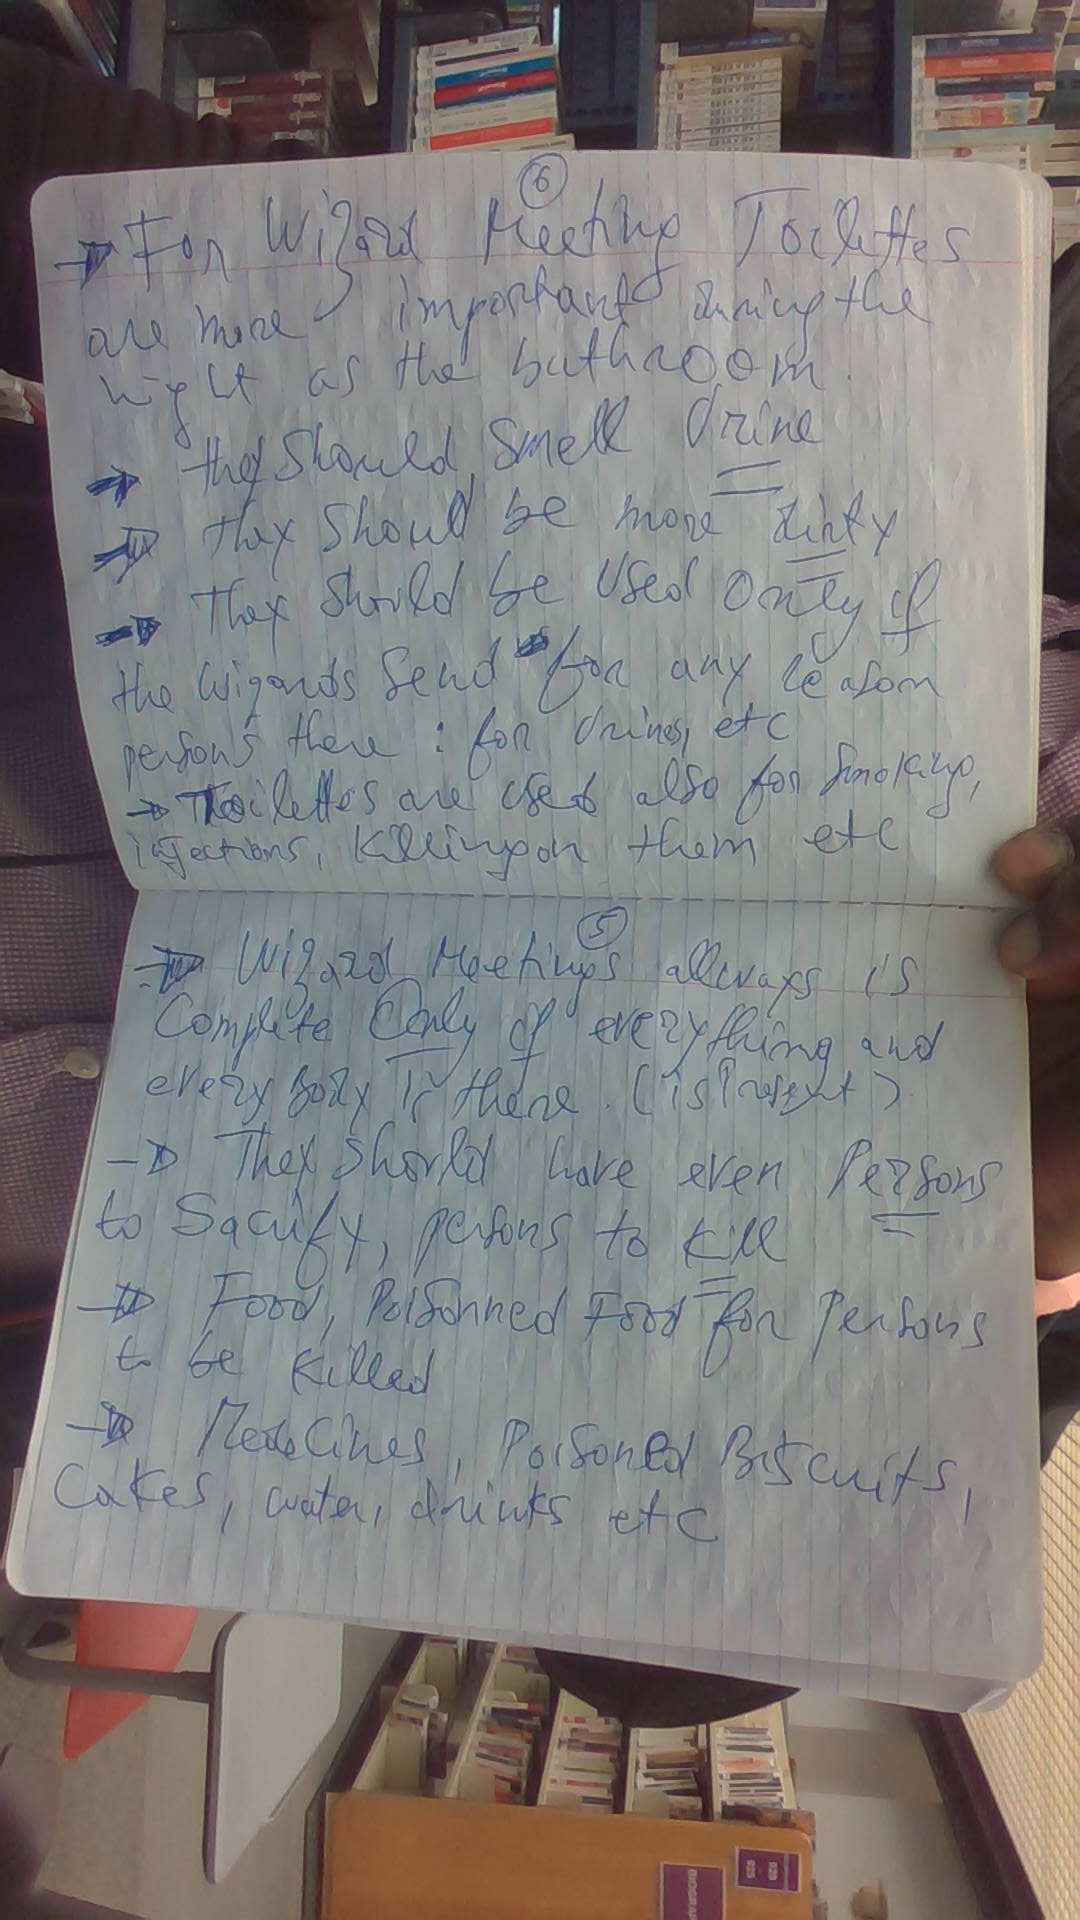 6
→ For Wizard Meeting Toilettes
are more important during the
night as the bathroom.
→ they should smell Urine
→ They should be more dirty
→ They should be used Only if
the wizards send for any reason
persons there : for Urines, etc
→ Toilettes are used also for Smoking,
injections, Killing on them etc
5
→ Wizard Meetings allways is
Complete Only if everything and
everybody is there. (is Present).
→ They should have even Persons
to Sacrify, persons to kill
→ Food, Poisonned Food for Persons
to be Killed
→ Medecines, Poisoned Biscuits,
Cakes, water, drinks etc